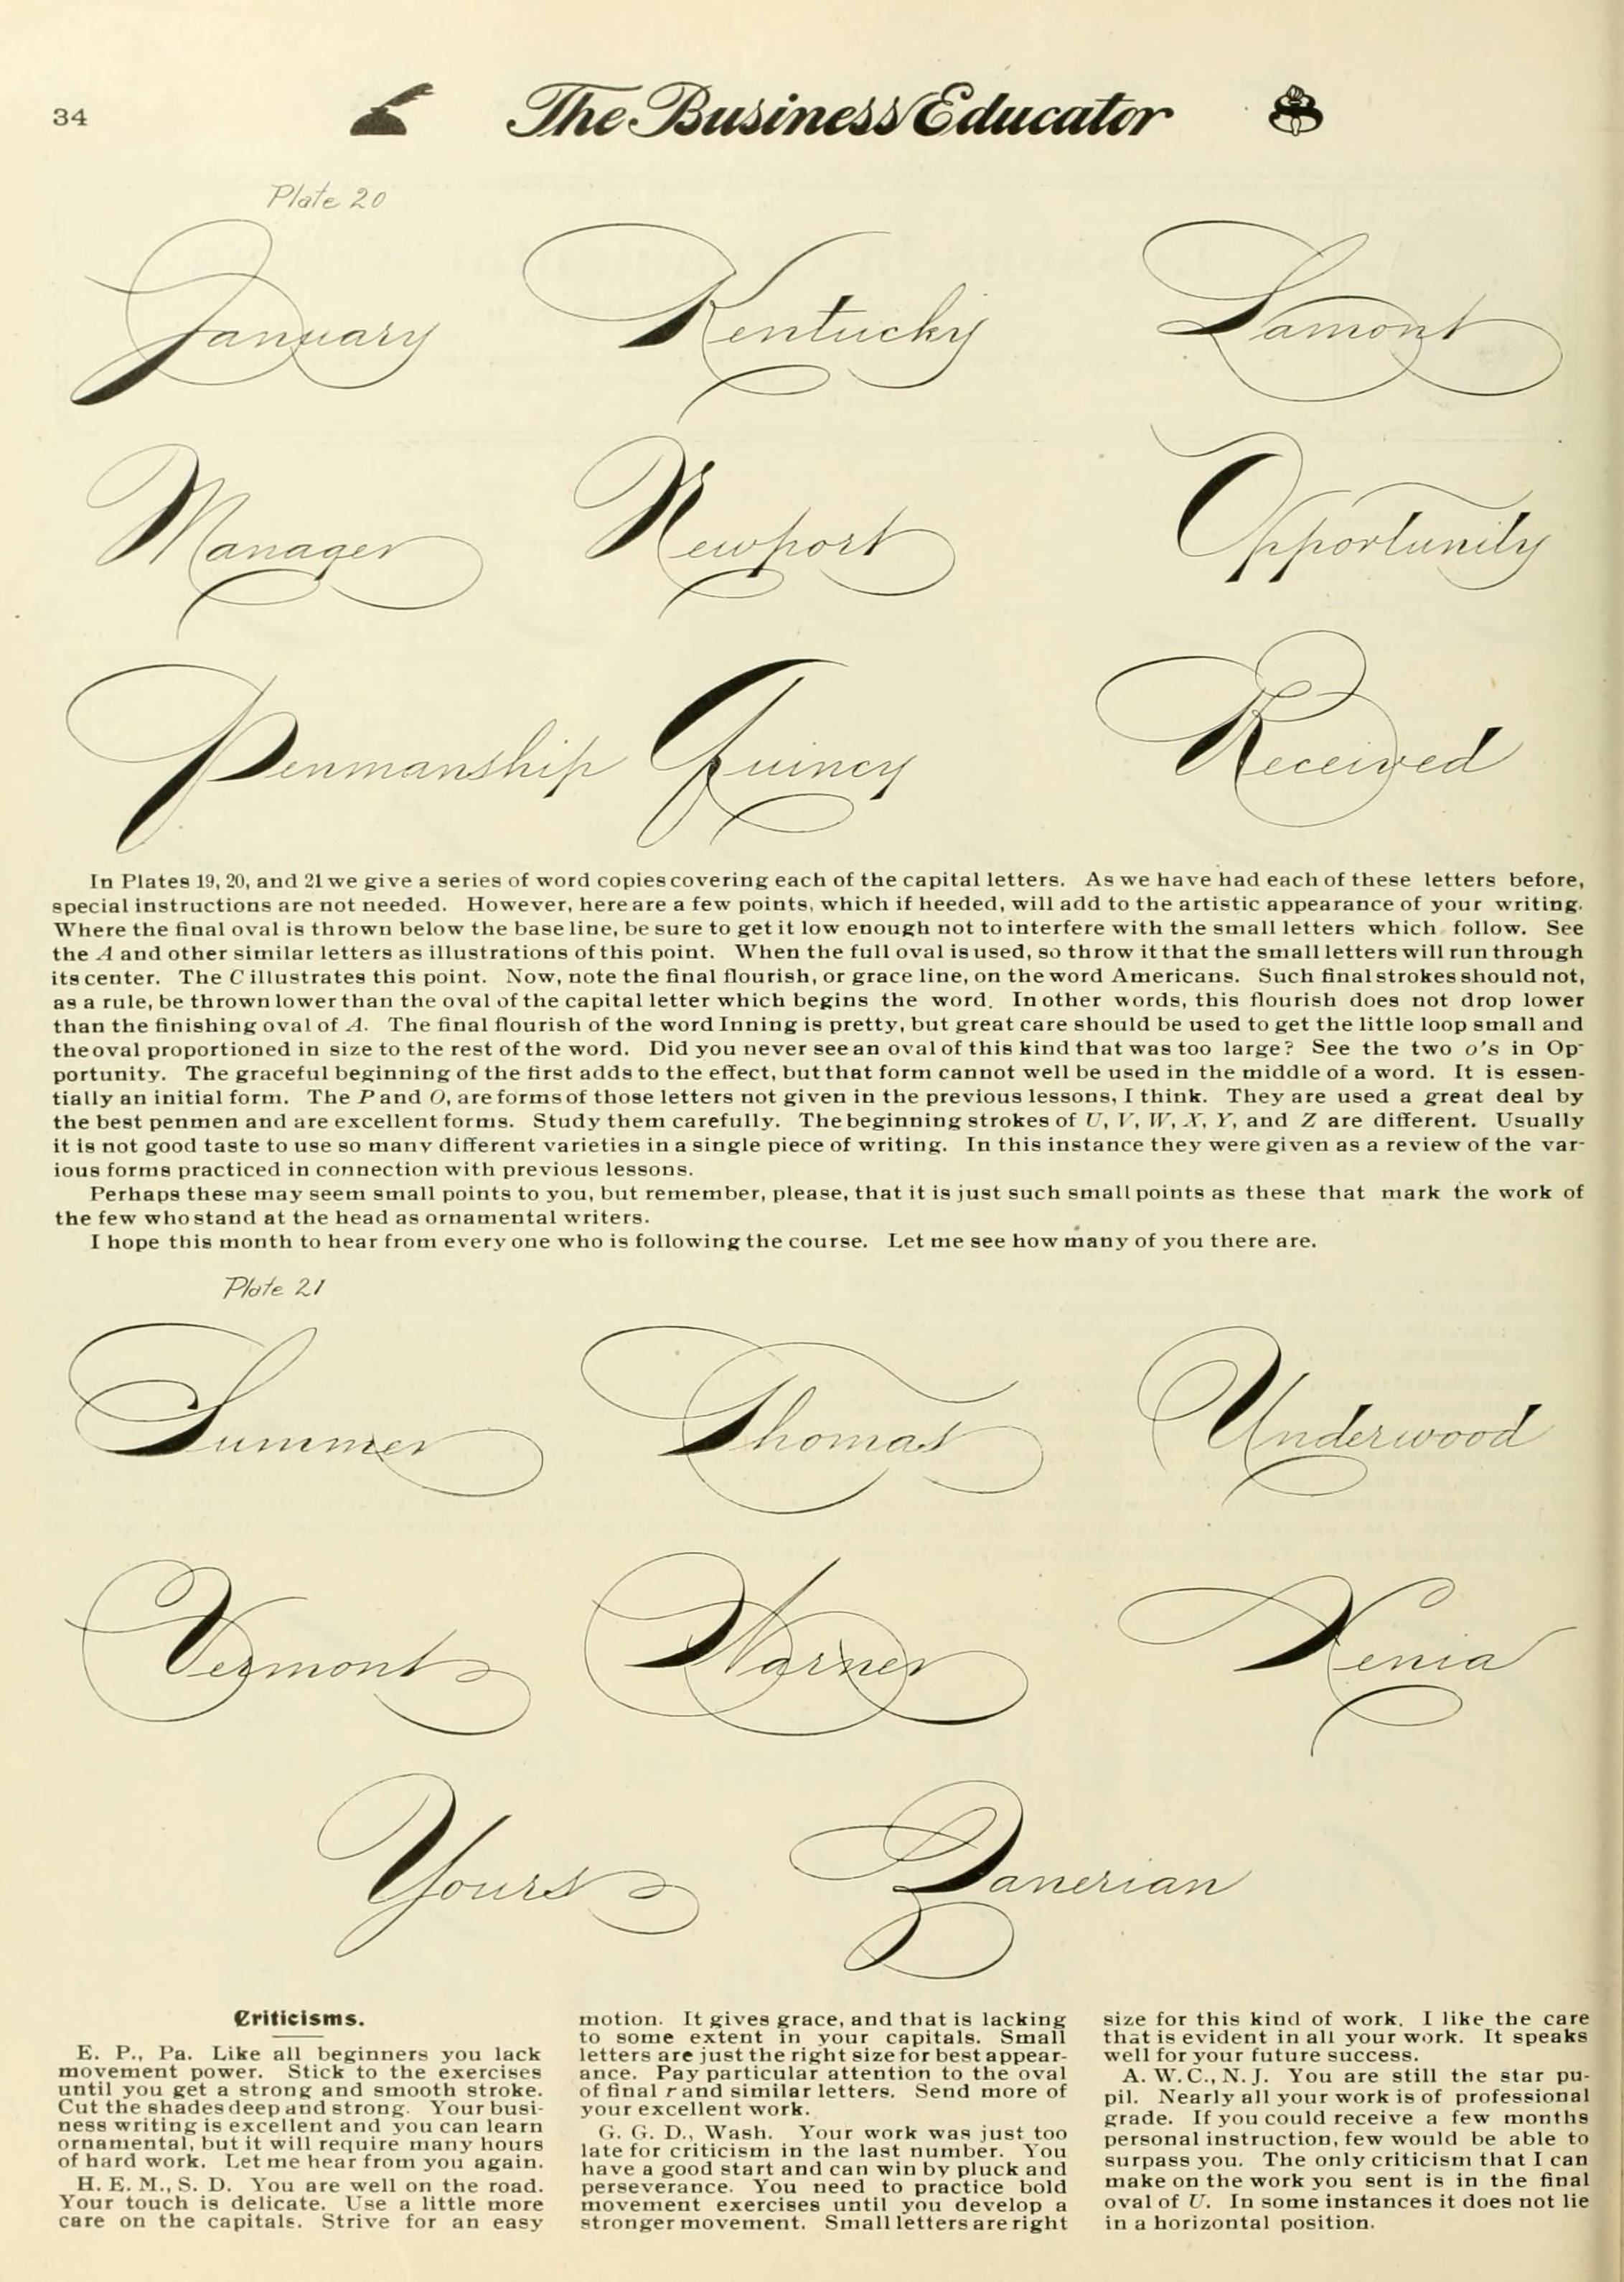 34
The Business Educator
Plate 20
January Kentucky Lamont
Manager Newport Opportunity
Penmanship Quincy Received
In Plates 19, 20, and 21 we give a series of word copies covering each of the capital letters. As we have had each of these letters before,
special instructions are not needed. However, here are a few points, which if heeded, will add to the artistic appearance of your writing.
Where the final oval is thrown below the base line, be sure to get it low enough not to interfere with the small letters which follow. See
the A and other similar letters as illustrations of this point. When the full oval is used, so throw it that the small letters will run through
its center. The C illustrates this point. Now, note the final flourish, or grace line, on the word Americans. Such final strokes should not,
as a rule, be thrown lower than the oval of the capital letter which begins the word. In other words, this flourish does not drop lower
than the finishing oval of A. The final flourish of the word Inning is pretty, but great care should be used to get the little loop small and
the oval proportioned in size to the rest of the word. Did you never see an oval of this kind that was too large? See the two o's in Op-
portunity. The graceful beginning of the first adds to the effect, but that form cannot well be used in the middle of a word. It is essen-
tially an initial form. The P and O, are forms of those letters not given in the previous lessons, I think. They are used a great deal by
the best penmen and are excellent forms. Study them carefully. The beginning strokes of U, V, W, X, Y, and Z are different. Usually
it is not good taste to use so many different varieties in a single piece of writing. In this instance they were given as a review of the var-
ious forms practiced in connection with previous lessons.
Perhaps these may seem small points to you, but remember, please, that it is just such small points as these that mark the work of
the few who stand at the head as ornamental writers.
I hope this month to hear from every one who is following the course. Let me see how many of you there are.
Plate 21
Summer Thomas Underwood
Vermont Warner Xenia
Yours Zanerian
Criticisms.
E. P., Pa. Like all beginners you lack
movement power. Stick to the exercises
until you get a strong and smooth stroke.
Cut the shades deep and strong. Your busi-
ness writing is excellent and you can learn
ornamental, but it will require many hours
of hard work. Let me hear from you again.
H. E. M., S. D. You are well on the road.
Your touch is delicate. Use a little more
care on the capitals. Strive for an easy
motion. It gives grace, and that is lacking
to some extent in your capitals. Small
letters are just the right size for best appear-
ance. Pay particular attention to the oval
of final r and similar letters. Send more of
your excellent work.
G. G. D., Wash. Your work was just too
late for criticism in the last number. You
have a good start and can win by pluck and
perseverance. You need to practice bold
movement exercises until you develop a
stronger movement. Small letters are right
size for this kind of work. I like the care
that is evident in all your work. It speaks
well for your future success.
A. W. C., N. J. You are still the star pu-
pil. Nearly all your work is of professional
grade. If you could receive a few months
personal instruction, few would be able to
surpass you. The only criticism that I can
make on the work you sent is in the final
oval of U. In some instances it does not lie
in a horizontal position.